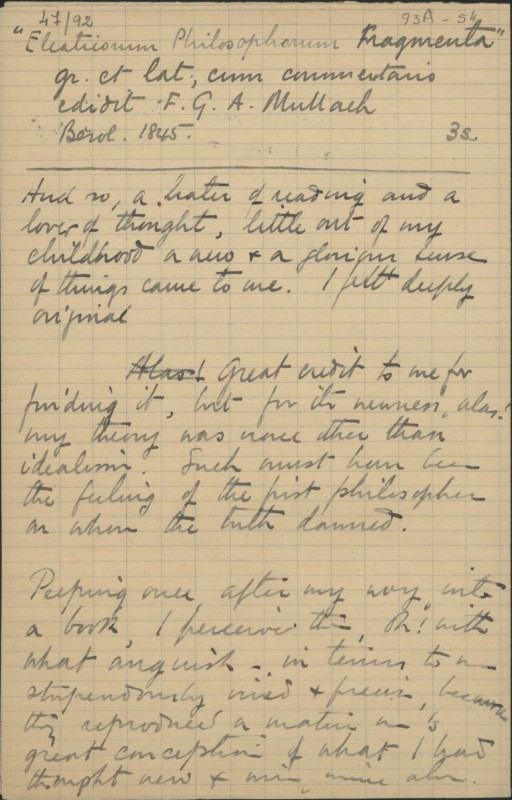 47/92
93A-54
"Eleaticorum Philosophorum Fragmenta"
gr. et lat, cum commentario
edidit F. G. A. Mullach
Berol. 1845. 3s
And so, a hater of reading and a
lover of thought, little out of my
childhood a new + a glorious sense
of things came to me. I felt deeply
original
Alas! Great credit to me for
finding it, but for its newness, alas!
my theory was none other than
idealism. Such must have been
the feeling of the first philosopher
on whom the truth dawned.
Peeping once, after my way, into
a book, I perceive this, Oh! with
what anguish - in terms to me
stupendously vivid + precise, because
they reproduced a
great conception of what I had
thought new + mine, mine alone.